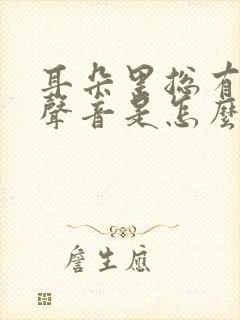 耳朵里总有
聲音是怎麼
詹生應